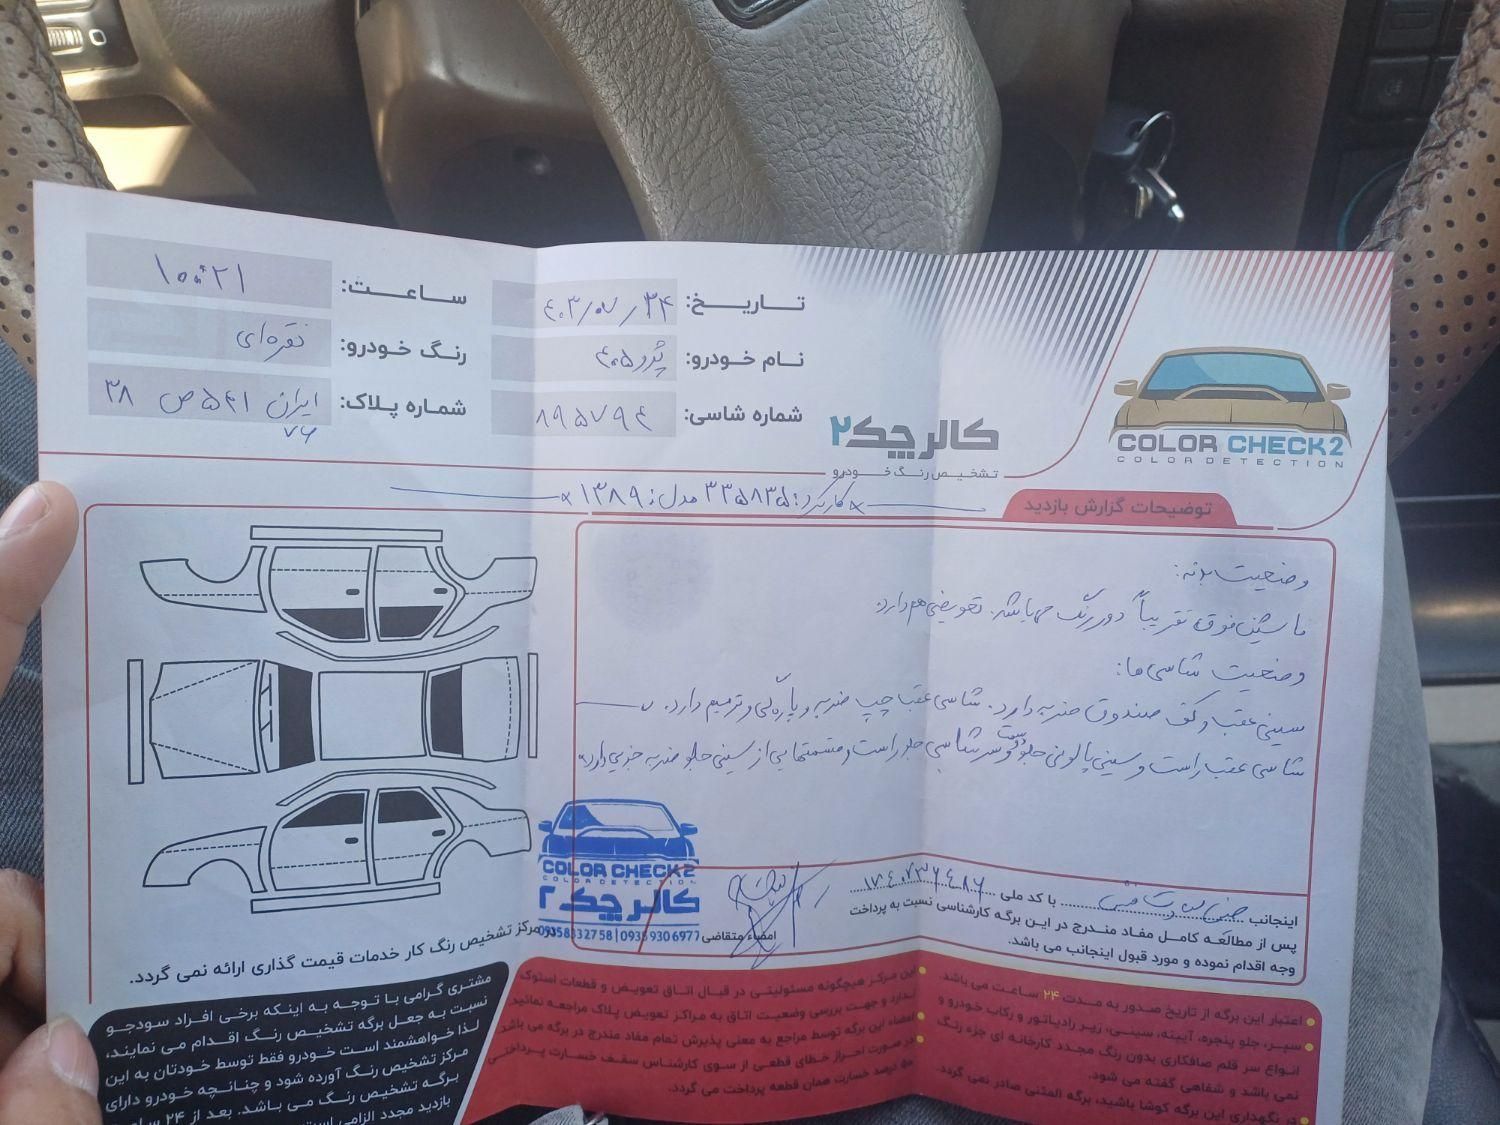 COLOR CHECK2
COLOR DETECTION
کالر چک۲
تشخیص رنگ خودرو
تاریخ: ۴۰۳/۰۷/۲۴
ساعت: ۱۰:۲۱
نام خودرو: پژو ۴۰۵
رنگ خودرو: نقره‌ای
شماره شاسی: ۸۹۵۷۹۴
شماره پلاک: ایران ۷۶ ۵۴۱ ص ۳۸
کارکرد: ۳۳۵۸۳۵ مدل: ۱۳۸۹
توضیحات گزارش بازدید
وضعیت بدنه:
ماشین فوق تقریباً دور رنگ می‌باشد. تعویضی هم دارد.
وضعیت شاسی ها:
سینی عقب و کف صندوق ضربه دارد. شاسی عقب چپ ضربه و پارگی و ترمیم دارد.
شاسی عقب راست و سینی پالونی جلو و سر شاسی جلو راست و قسمتهایی از سینی جلو ضربه جزیی دارد.
اینجانب با کد ملی
پس از مطالعه کامل مفاد مندرج در این برگه کارشناسی نسبت به پرداخت
وجه اقدام نموده و مورد قبول اینجانب می باشد.
امضاء متقاضی
COLOR CHECK2
COLOR DETECTION
کالر چک ۲
09358332758 | 09359306977
در مرکز تشخیص رنگ کار خدمات قیمت گذاری ارائه نمی گردد.
اعتبار این برگه از تاریخ صدور به مدت ۲۴ ساعت می باشد.
سپر، جلو پنجره، آیینه، سینی، زیر رادیاتور و رکاب خودرو و
انواع سر قلم صافکاری بدون رنگ مجدد کارخانه ای جزء رنگ
نمی باشد و شفاهی گفته می شود.
در نگهداری این برگه کوشا باشید، برگه المثنی صادر نمی گردد.
این مرکز هیچگونه مسئولیتی در قبال اتاق تعویض و قطعات استوک
ندارد و جهت بررسی وضعیت اتاق به مراکز تعویض پلاک مراجعه نمائید.
امضاء این برگه توسط مراجع به معنی پذیرش تمام مفاد مندرج در برگه می باشد
در صورت احراز خطای قطعی از سوی کارشناس سقف خسارت پرداختی
۵۰ درصد خسارت همان قطعه پرداخت می گردد.
مشتری گرامی با توجه به اینکه برخی افراد سودجو
نسبت به جعل برگه تشخیص رنگ اقدام می نمایند،
لذا خواهشمند است خودرو فقط توسط خودتان به این
مرکز تشخیص رنگ آورده شود و چنانچه خودرو دارای
برگه تشخیص رنگ می باشد. بعد از ۲۴
بازدید مجدد الزامی است